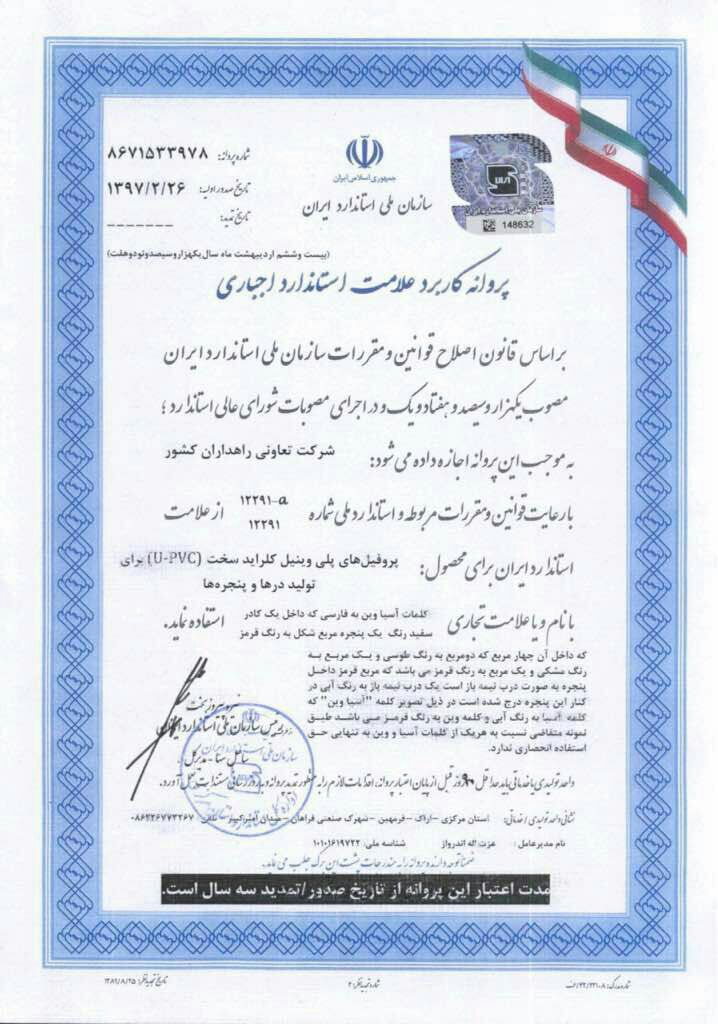 جمهوری اسلامی ایران
سازمان ملی استاندارد ایران
148632
شماره پروانه: ۸۶۷۱۵۳۳۹۷۸
تاریخ صدور اولیه: ۱۳۹۷/۲/۲۶
تاریخ تمدید: -------
(بیست وششم اردیبهشت ماه سال یکهزاروسیصدونودوهفت)
پروانه کاربرد علامت استاندارد اجباری
براساس قانون اصلاح قوانین و مقررات سازمان ملی استاندارد ایران
مصوب یکهزار و سیصد و هفتاد و یک و در اجرای مصوبات شورای عالی استاندارد ؛
به موجب این پروانه اجازه داده می شود: شرکت تعاونی راهداران کشور
با رعایت قوانین و مقررات مربوطه و استاندارد ملی شماره ۱۲۲۹۱-a ۱۲۲۹۱ از علامت
استاندارد ایران برای محصول: پروفیل‌های پلی وینیل کلراید سخت (U-PVC) برای
تولید درها و پنجره‌ها
با نام و یا علامت تجاری کلمات آسیا وین به فارسی که داخل یک کادر
سفید رنگ یک پنجره مربع شکل به رنگ قرمز استفاده نماید.
که داخل آن چهار مربع که دومربع به رنگ طوسی و یک مربع به
رنگ مشکی و یک مربع به رنگ قرمز می باشد که مربع قرمز داخل
پنجره به صورت درب نیمه باز است یک درب نیمه باز به رنگ آبی در
کنار این پنجره درج شده است در ذیل تصویر کلمه "آسیا وین" که
کلمه آسیا به رنگ آبی و کلمه وین به رنگ قرمز می باشد طبق
نمونه متقاضی نسبت به هریک از کلمات آسیا و وین به تنهایی حق
استفاده انحصاری ندارد.
نیره پیروزبخت
رئیس سازمان ملی استاندارد ایران
واحد تولیدی یا خدماتی باید حداقل ۹۰ روز قبل از پایان اعتبار پروانه، اقدامات لازم را به منظور تمدید پروانه و بروز رسانی مستندات بعمل آورد.
نشانی واحد تولیدی / خدماتی: استان مرکزی -اراک- فرمهین -شهرک صنعتی فراهان-میدان امیرکبیر تلفن ۰۸۶۲۶۷۷۳۲۶۷
نام مدیرعامل: عزت اله اندرواژ شناسه ملی: ۱۰۱۰۱۶۱۹۷۲۲
ضمناً توجه دارنده پروانه را به مندرجات پشت این برگ جلب می نماید.
مدت اعتبار این پروانه از تاریخ صدور/تمدید سه سال است.
شماره تجدیدنظر: ۲